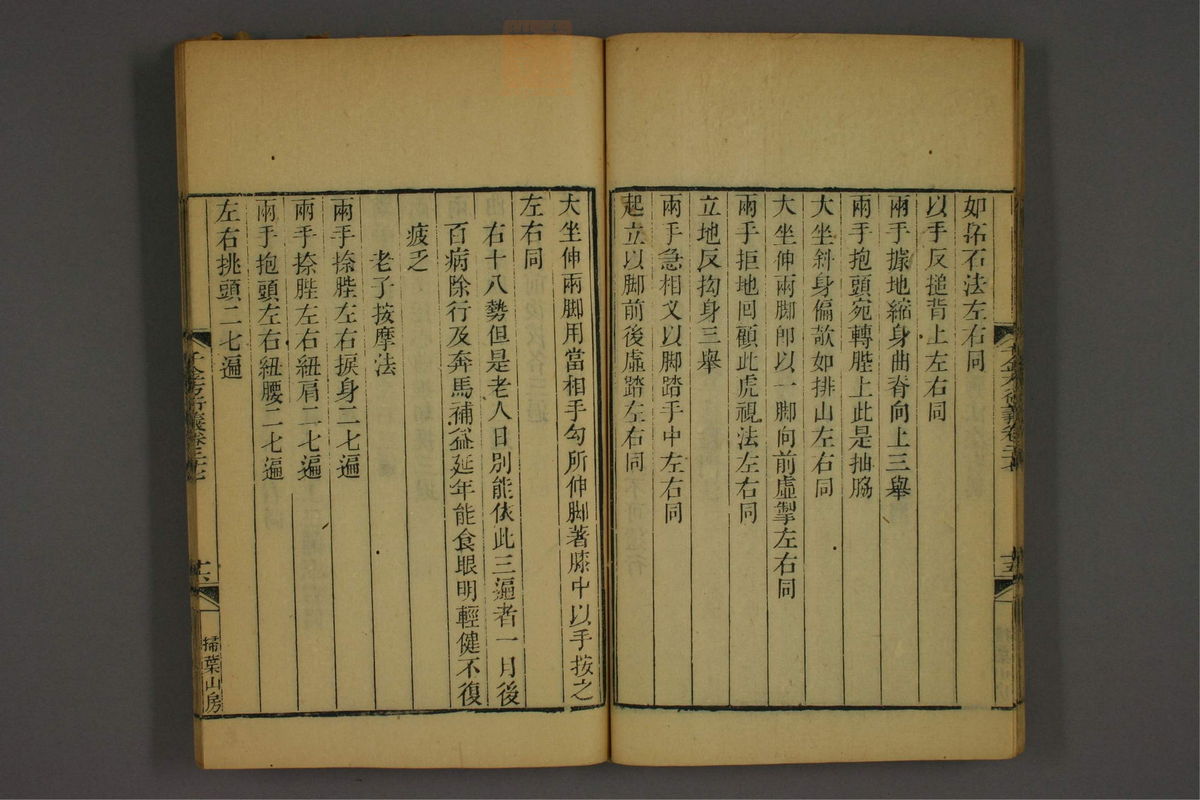 如拓石法左右同
以手反搥背上左右同
兩手據地縮身曲脊向上三舉
兩手抱頭宛轉䏶上此是抽脇
大坐斜身偏欹如排山左右同
大坐伸兩脚卽以一脚向前虛掣左右同
兩手拒地回顧此虎視法左右同
立地反拗身三舉
兩手急相叉以脚踏手中左右同
起立以脚前後虛踏左右同
大坐伸兩脚用當相手勾所伸脚著膝中以手按之
左右同
右十八勢但是老人日別能依此三遍者一月後
百病除行及奔馬補益延年能食眼明輕健不復
疲乏
老子按摩法
兩手捺䏶左右捩身二七遍
兩手捺䏶左右紐肩二七遍
兩手抱頭左右紐腰二七遍
左右挑頭二七遍
千金方衍義卷二十七
十六
掃葉山房